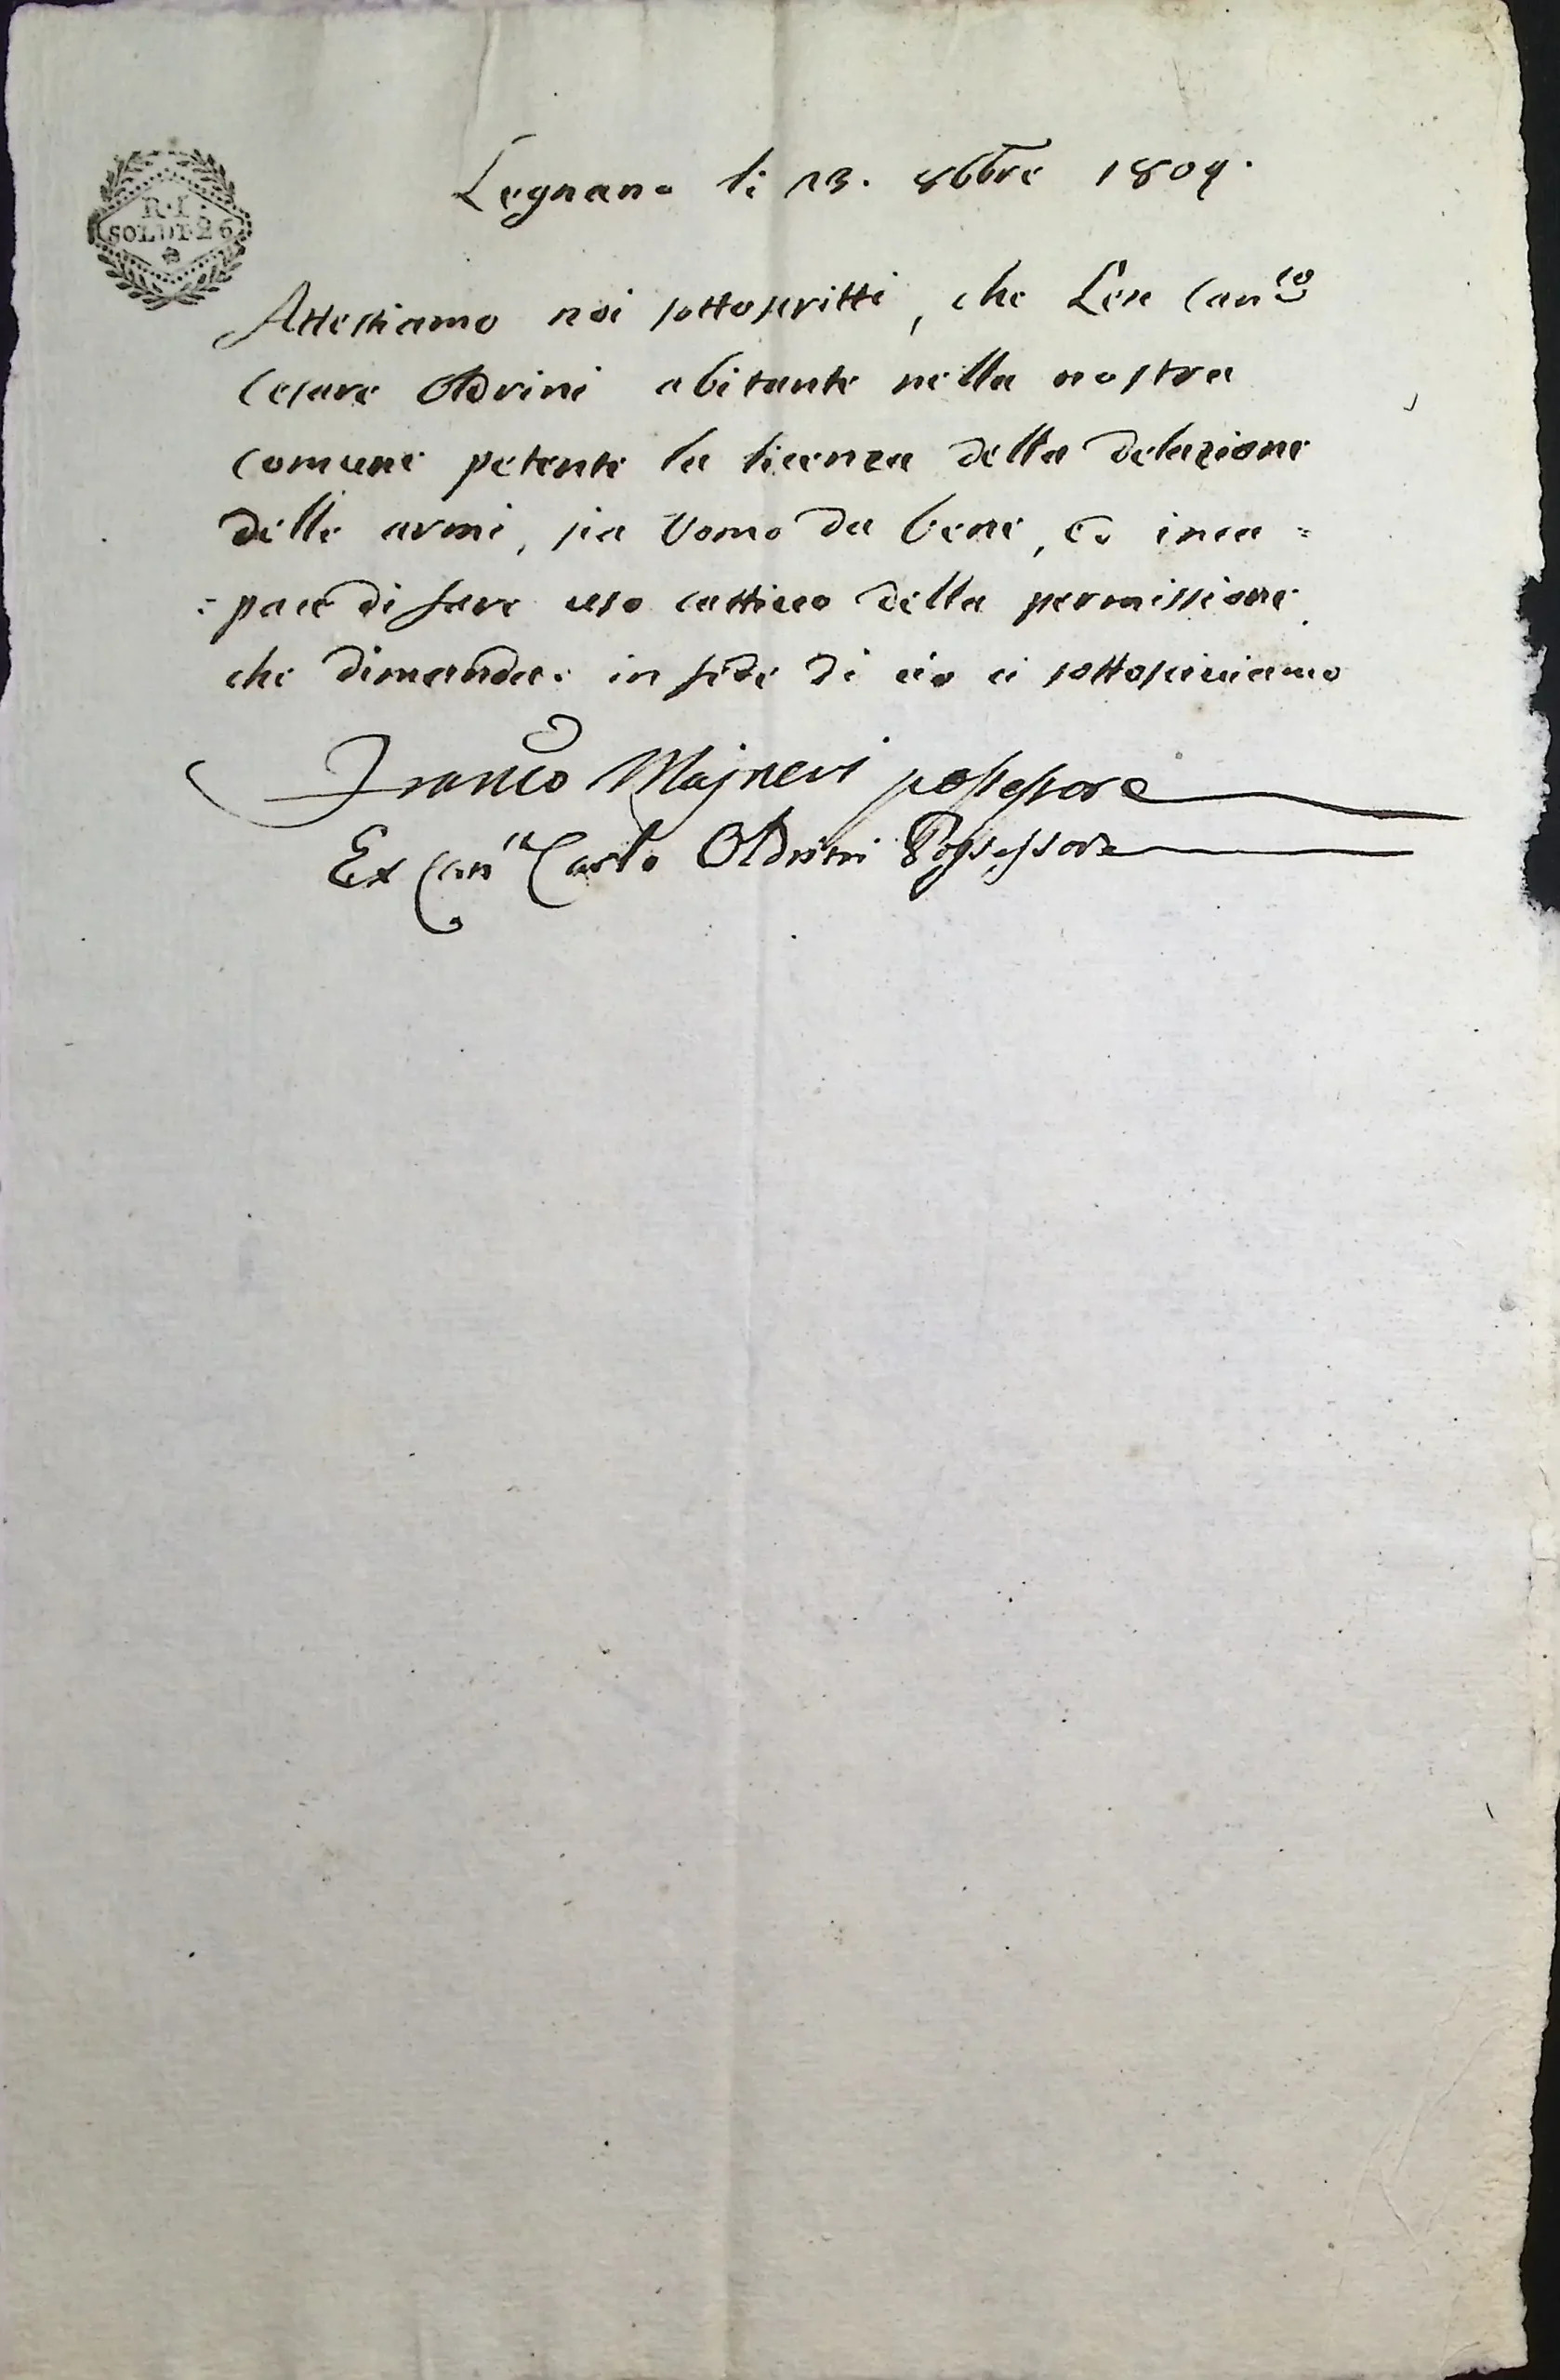 R. I.
SOLDI 26
Legnano li 13. 8bbre 1809.
Attestiamo noi sottoscritti, che L'ex Canco
Cesare Oldrini abitante nella nostra
comune petente la licenza della delazione
delle armi, sia Uomo da bene, ed inca=
=pace di fare uso cattivo della permissione
che dimanda. in fede di ciò ci sottoscriviamo
Franco Majneri possessore
Ex Canco Carlo Oldrini Possessore